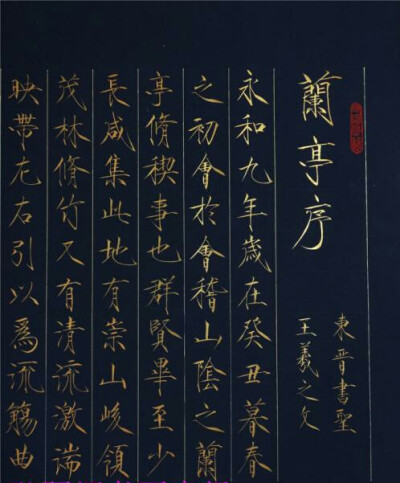 蘭亭序
東晉書聖
王羲之文
永和九年歲在癸丑暮春
之初會於會稽山陰之蘭
亭脩稧事也群賢畢至少
長咸集此地有崇山峻領
茂林脩竹又有清流激湍
映帶左右引以爲流觴曲